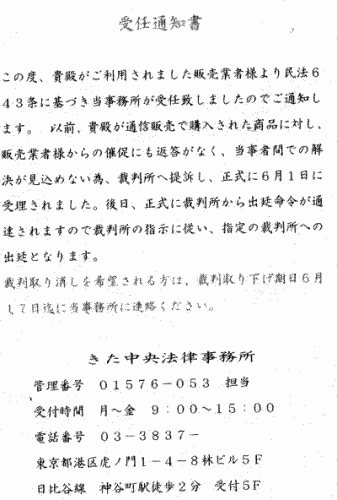 受任通知書
この度、貴殿がご利用されました販売業者様より民法６
４３条に基づき当事務所が受任致しましたのでご通知し
ます。　以前、貴殿が通信販売で購入された商品に対し、
販売業者様からの催促にも返答がなく、当事者間での解
決が見込めない為、裁判所へ提訴し、正式に６月１日に
受理されました。後日、正式に裁判所から出廷命令が通
達されますので裁判所の指示に従い、指定の裁判所への
出廷となります。
裁判取り消しを希望される方は、裁判取り下げ期日６月
１７日迄に当事務所に連絡ください。
きた中央法律事務所
管理番号　０１５７６－０５３　担当
受付時間　月～金　９：００～１５：００
電話番号　０３－３８３７－
東京都港区虎ノ門１－４－８林ビル５Ｆ
日比谷線　神谷町駅徒歩２分　受付５Ｆ